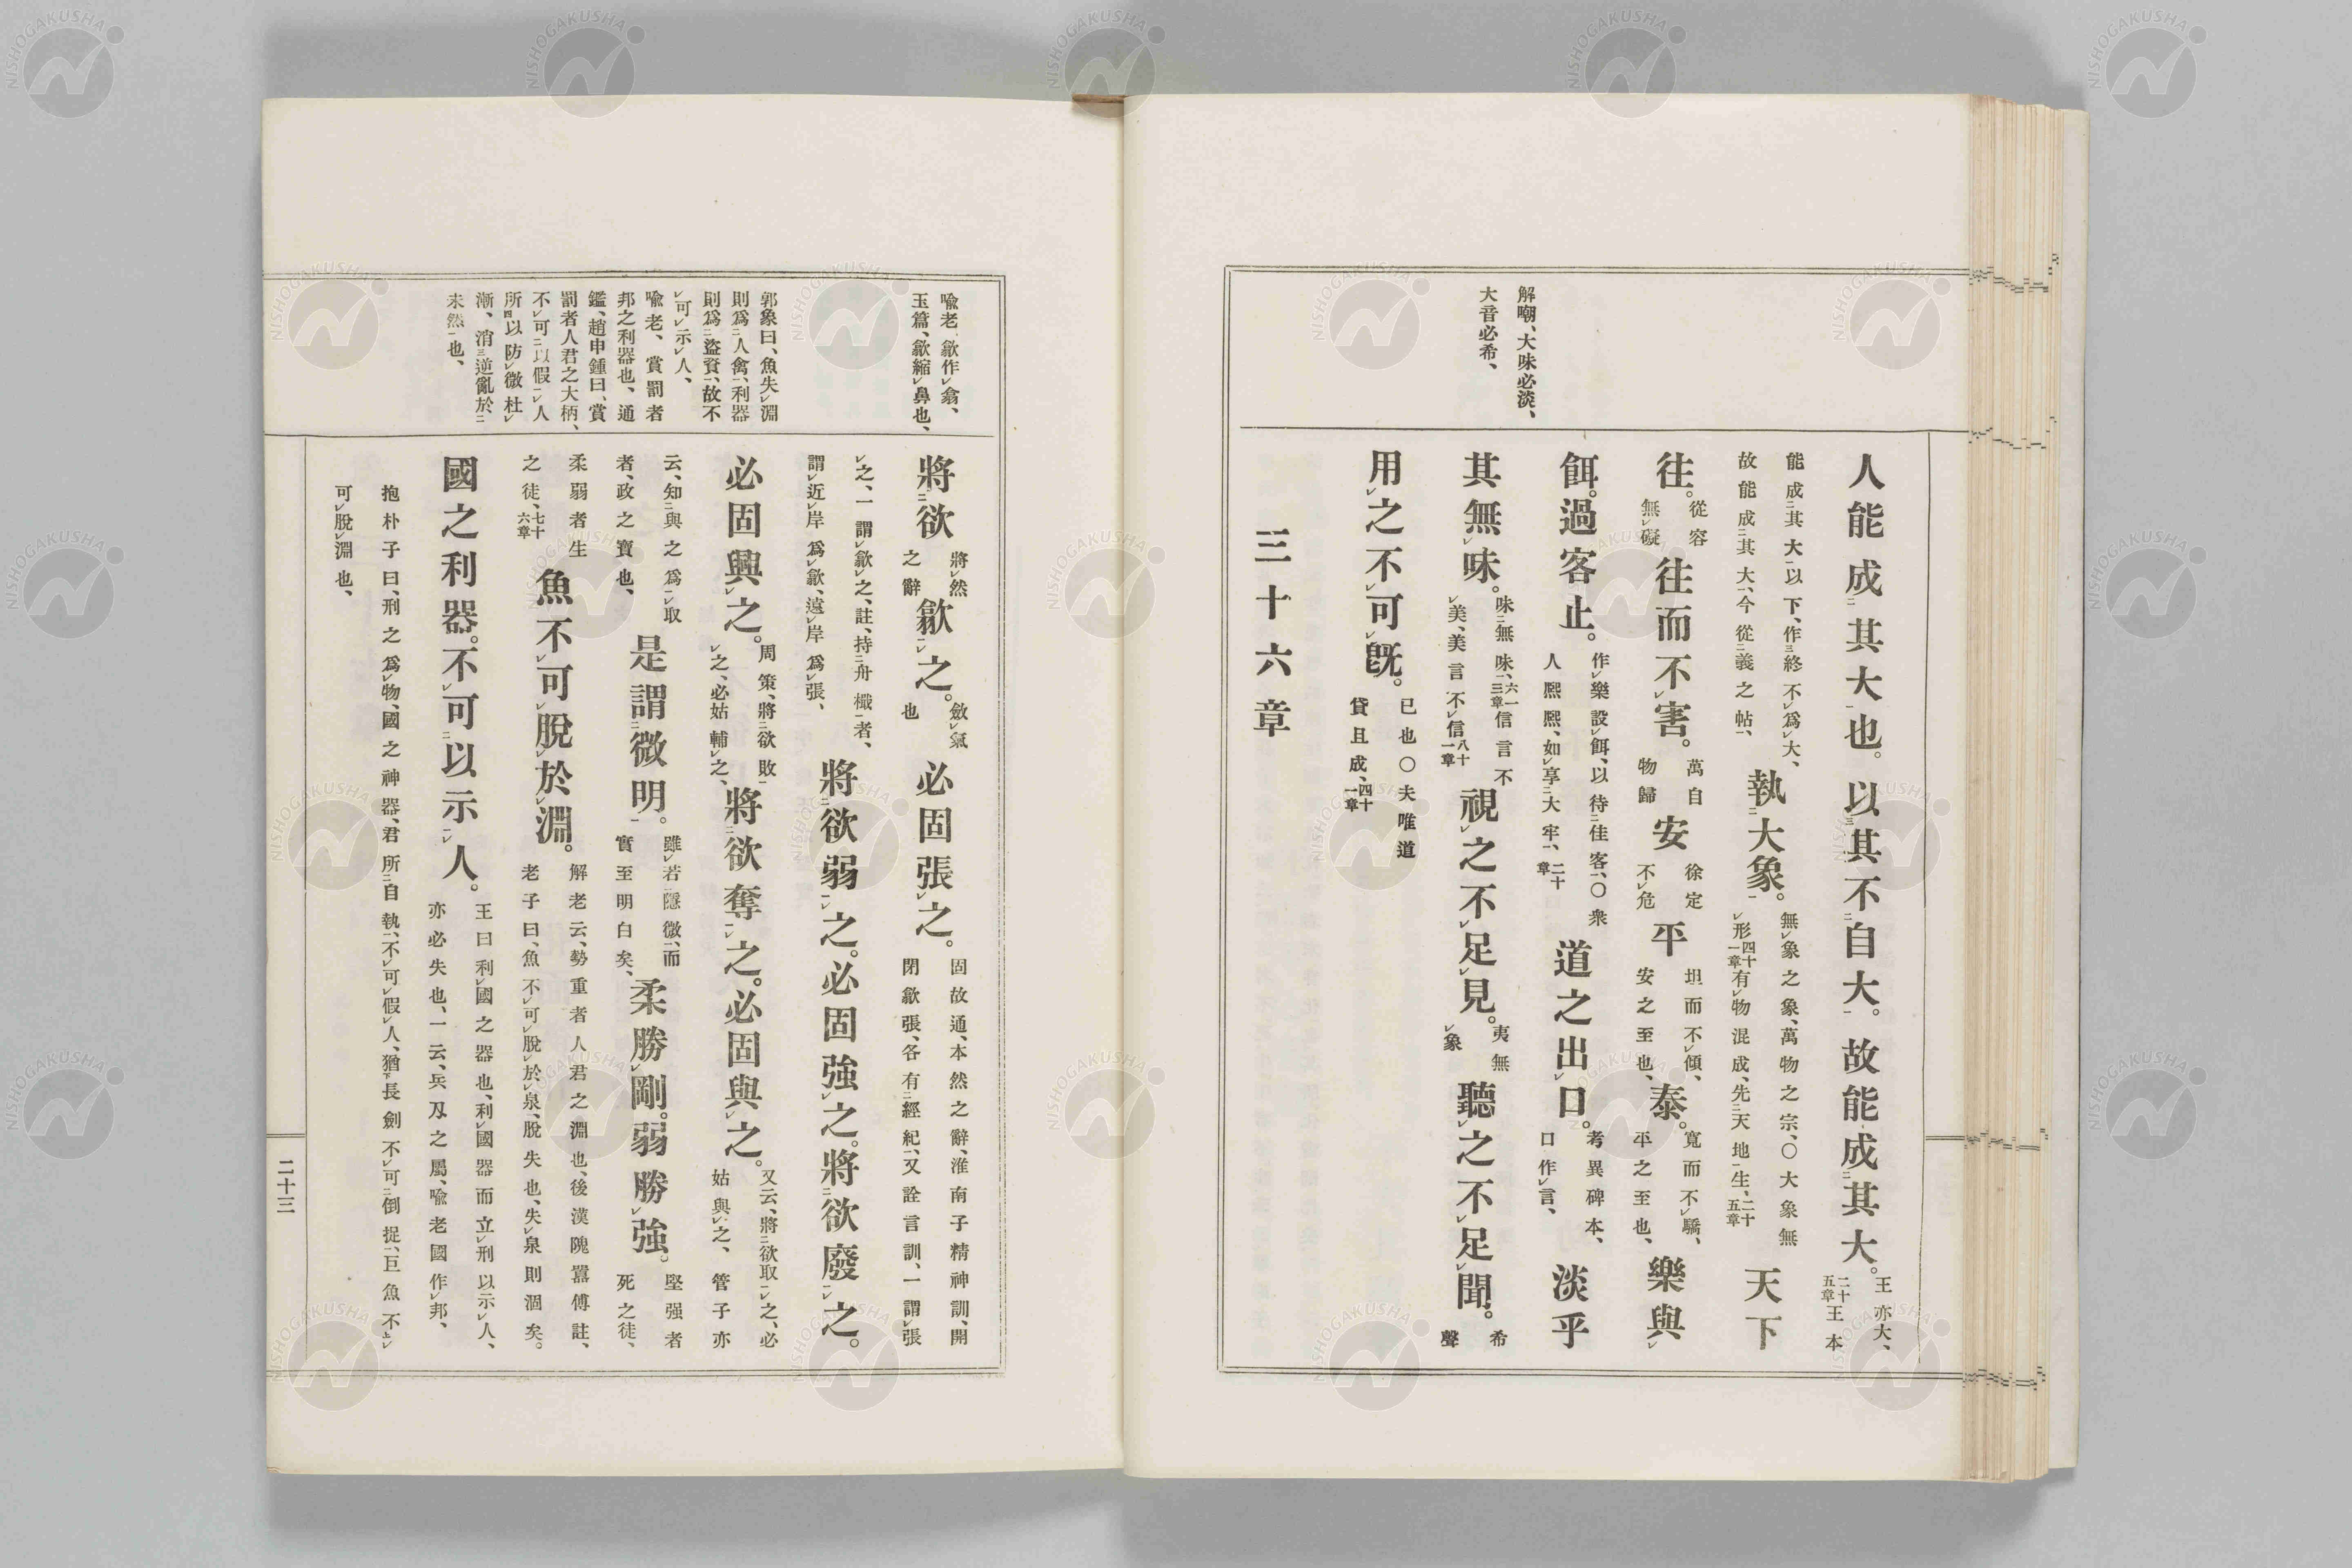 解嘲、大味必淡、
大音必希、
人能成其大也。以其不自大。故能成其大。王亦大、二十五章王本
能成其大以下、作終不爲大、故能成其大、今從義之帖、執大象。無象之象、萬物之宗、〇大象無形四十一章有物混成、先天地生、二十五章天下
往。從容無礙往而不害。萬自物歸安徐定不危平坦而不傾、安之至也、泰。寬而不驕、平之至也、樂與
餌。過客止。作樂設餌、以待佳客、〇衆人熙熙、如享大牢、二十章道之出口。考異碑本、口作言、淡乎
其無味。味無味、六十三章信言不美、美言不信八十一章視之不足見。夷無象聽之不足聞。希聲
用之不可旣。已也〇夫唯道貸且成、四十一章
三十六章
喩老、歙作翕、
玉篇、歙縮鼻也、
郭象曰、魚失淵
則爲人禽、利器
則爲盜資、故不
可示人、
喩老、賞罰者
邦之利器也、通
鑑、趙申鍾曰、賞
罰者人君之大柄、
不可以假人
所以防微杜
漸、消逆亂於
未然也、
將欲將然之辭歙之。斂氣也必固張之。固故通、本然之辭、淮南子精神訓、開閉歙張、各有經紀、又詮言訓、一謂張
之、一謂歙之、註、持舟檝者、謂近岸爲歙、遠岸爲張、將欲弱之。必固強之。將欲廢之。
必固興之。周策、將欲敗之、必姑輔之、將欲奪之。必固與之。又云、將欲取之、必姑與之、管子亦
云、知與之爲取者、政之寶也、是謂微明。雖若隱微、而實至明白矣、柔勝剛。弱勝強。堅强者死之徒、
柔弱者生之徒、七十六章魚不可脫於淵。解老云、勢重者人君之淵也、後漢隗囂傅註、老子曰、魚不可脫於泉、脫失也、失泉則涸矣。
國之利器。不可以示人。王曰利國之器也、利國器而立刑以示人、亦必失也、一云、兵刄之屬、喩老國作邦、
抱朴子曰、刑之爲物、國之神器、君所自執、不可假人、猶長劍不可倒捉、巨魚不
可脫淵也、
二十三
NISHOGAKUSHA